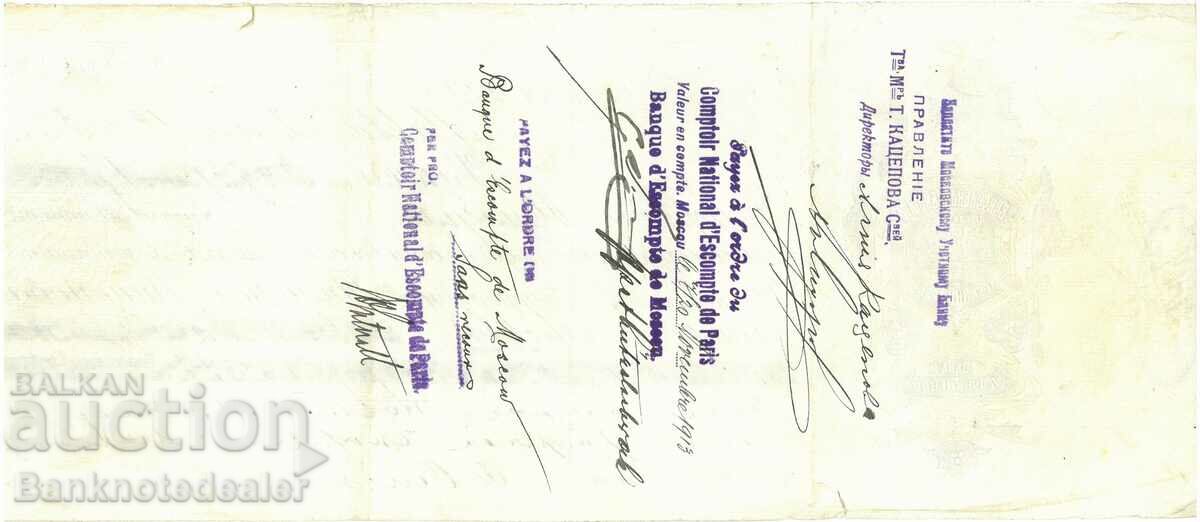 Заплатите Московскому Учетному Банку
ПРАВЛЕНІЕ
Тва. Мръ Т. КАЦЕПОВА Свей
Директоры
Payez à l'ordre du
Comptoir National d'Escompte de Paris
Valeur en compte. Moscou, le 7/20 Novembre 1913
Banque d'Escompte de Moscou.
PAYEZ A L'ORDRE DE
Banque d'Escompte de Moscou
sans recours
PER PRO.
Comptoir National d'Escompte de Paris.
BALKAN
auction
Banknotedealer